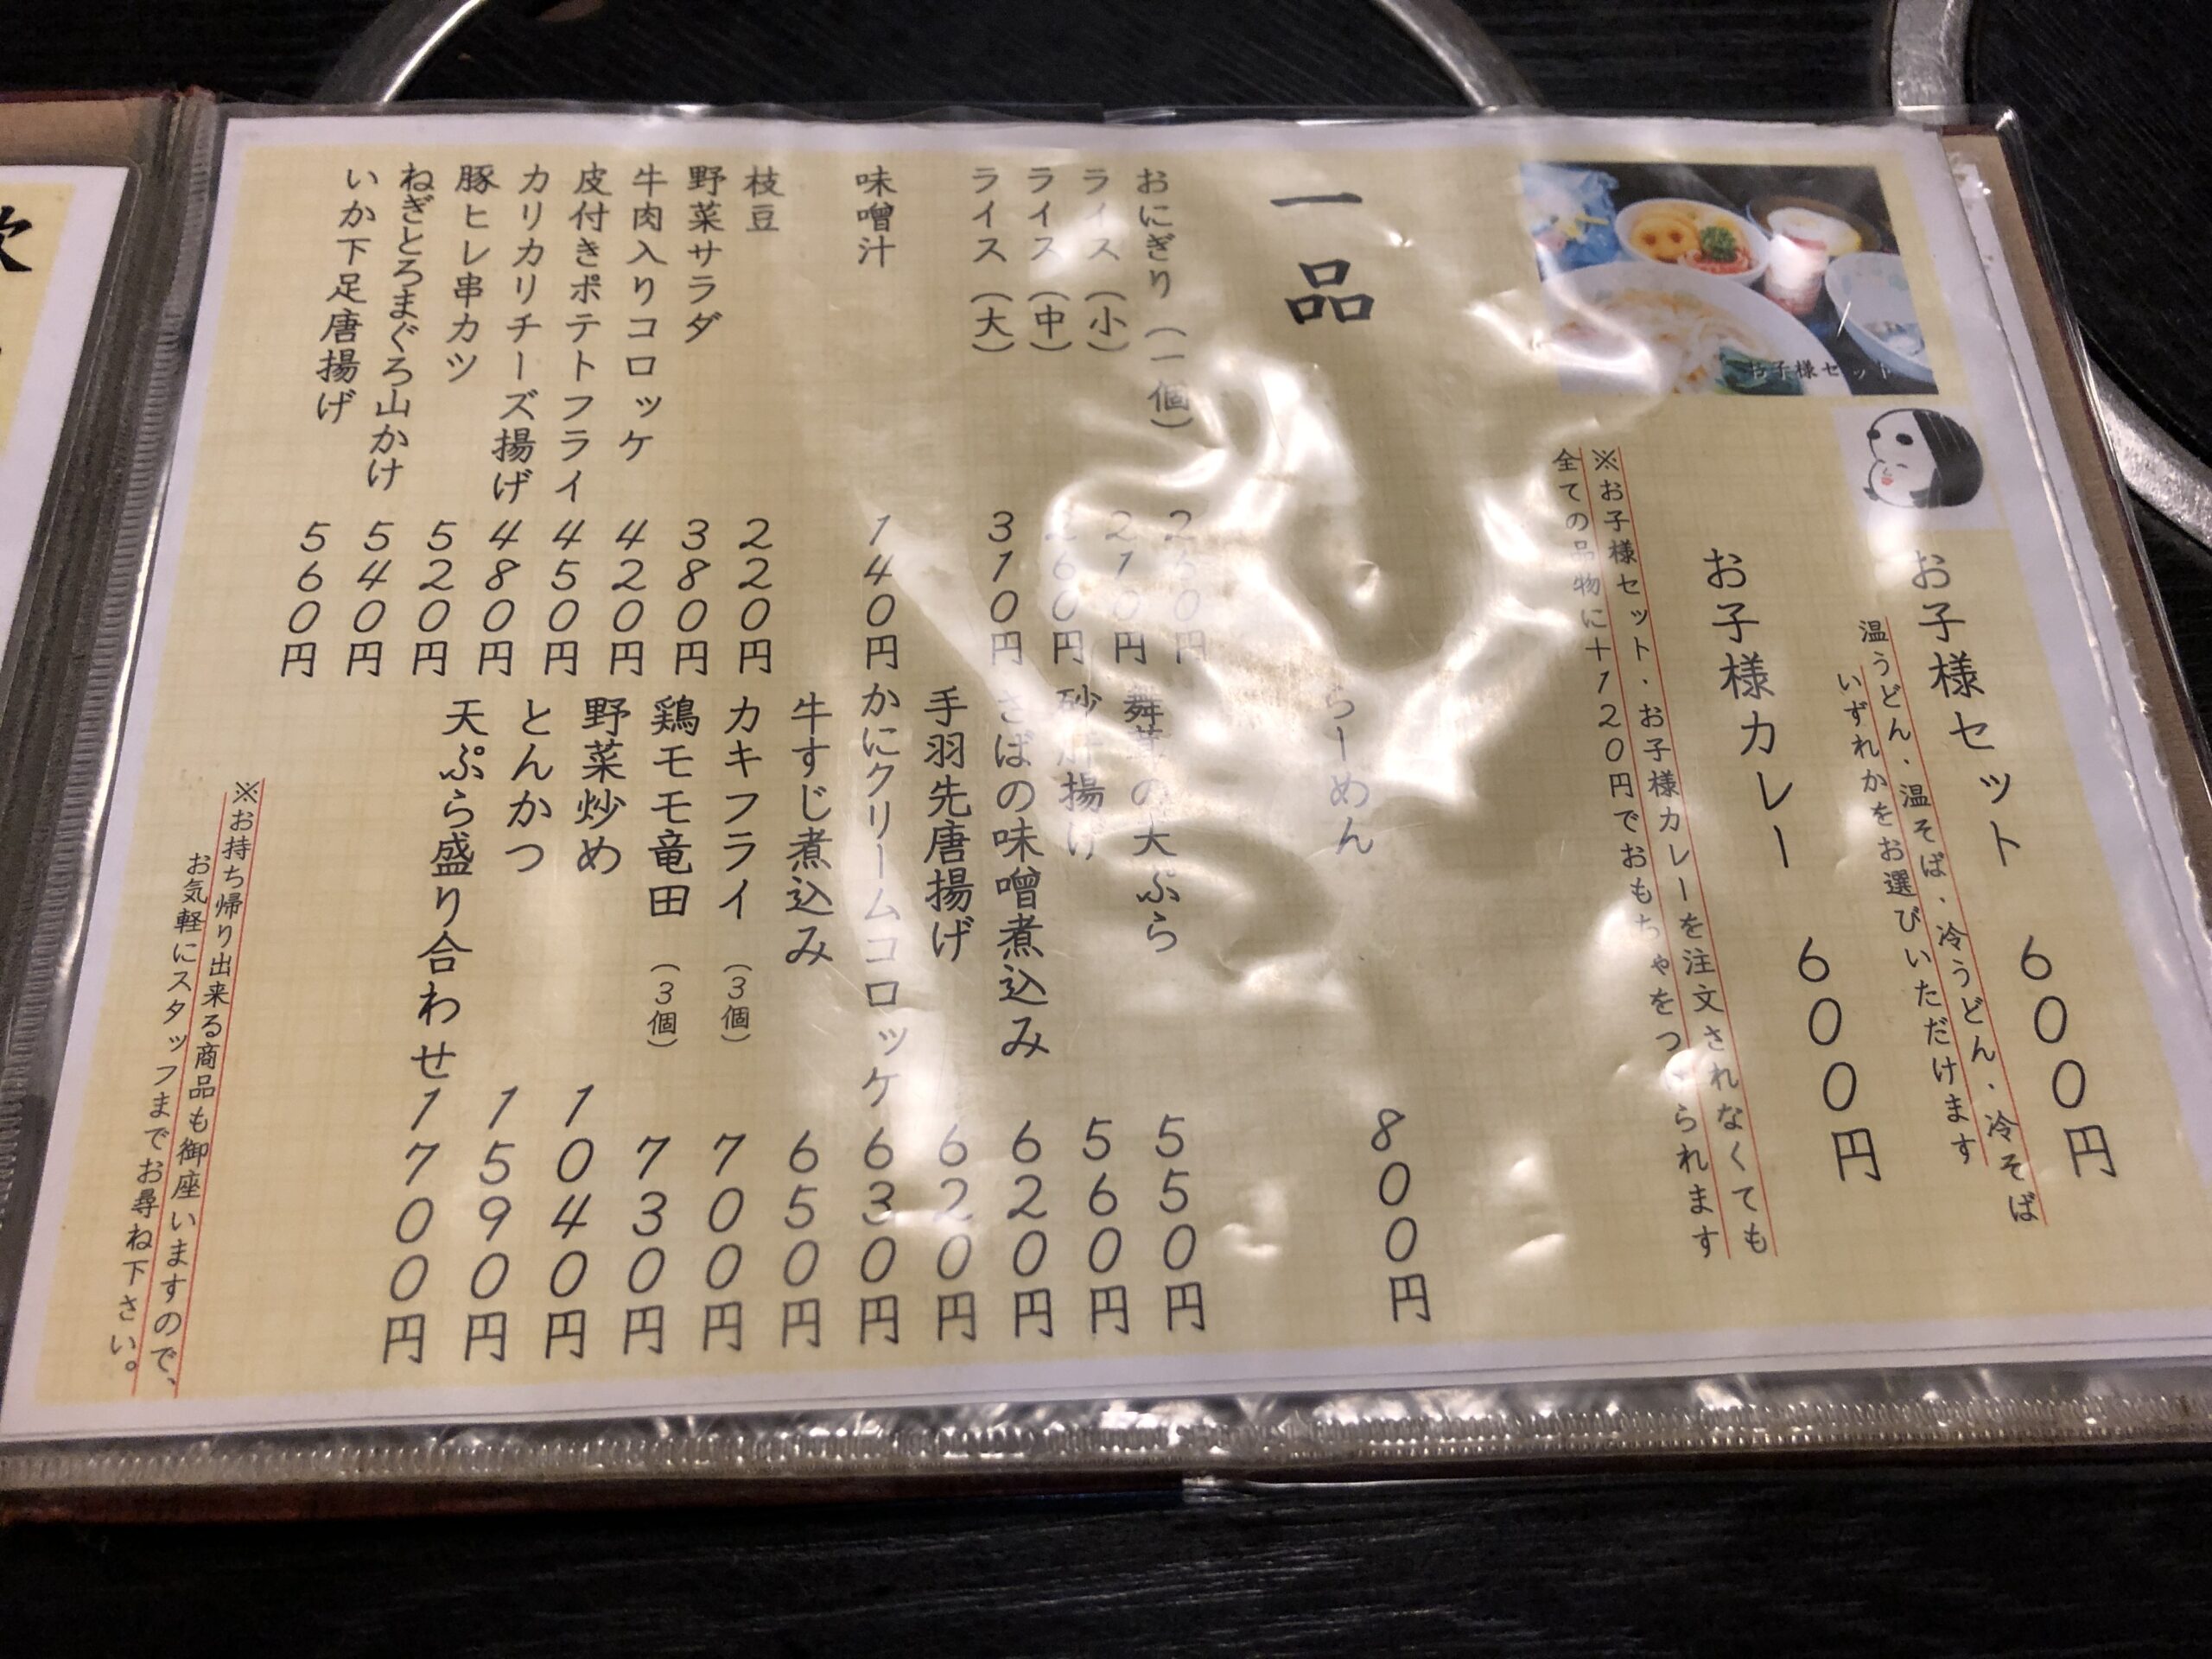 お子様セット
お子様セット 600円
温うどん・温そば・冷うどん・冷そば
いずれかをお選びいただけます
お子様カレー 600円
※お子様セット・お子様カレーを注文されなくても
全ての品物に+120円でおもちゃをつけられます
一品
らーめん 800円
おにぎり(一個)
ライス(小) 210円
ライス(中) 260円
ライス(大) 310円
味噌汁 140円
枝豆 220円
野菜サラダ 380円
牛肉入りコロッケ 420円
皮付きポテトフライ 450円
カリカリチーズ揚げ 480円
豚ヒレ串カツ 520円
ねぎとろまぐろ山かけ 540円
いか下足唐揚げ 560円
舞茸の天ぷら 550円
砂肝揚げ 560円
さばの味噌煮込み 620円
手羽先唐揚げ 620円
かにクリームコロッケ 630円
牛すじ煮込み 650円
カキフライ(3個) 700円
鶏モモ竜田(3個) 730円
野菜炒め 1040円
とんかつ 1590円
天ぷら盛り合わせ 1700円
※お持ち帰り出来る商品も御座いますので、
お気軽にスタッフまでお尋ね下さい。